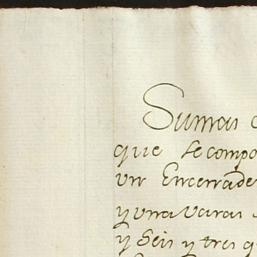 Sumas
que se compo
Un Encerrade
y una varas
y seis y tres q